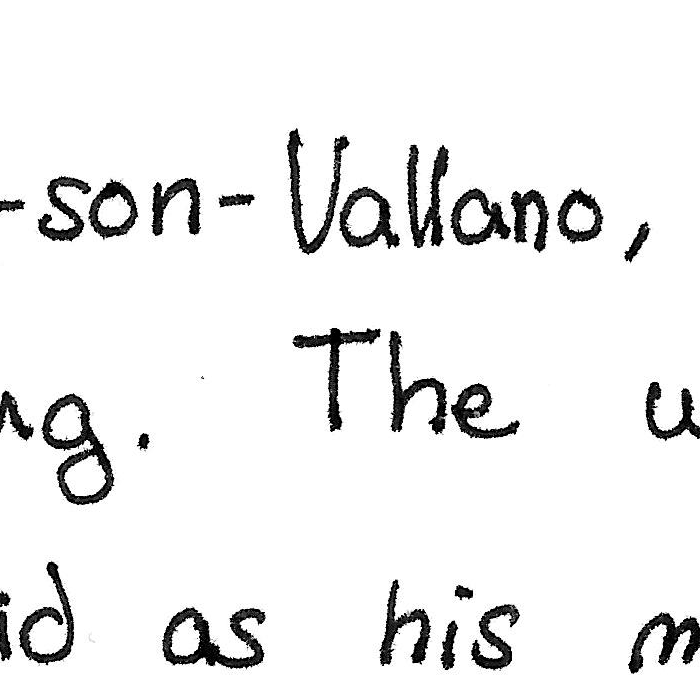 -son-Vallano,
ng. The u
id as his m